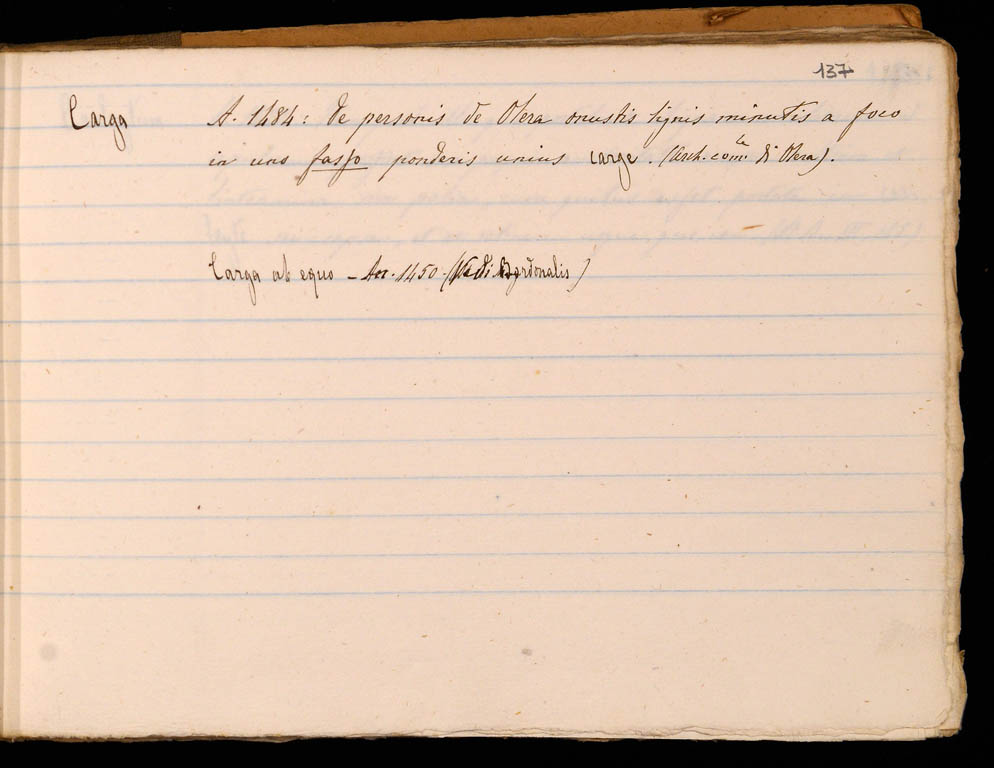 137
Carga A. 1484: de personis de Olera onustis lignis minutis a foco
in uno fasso ponderis unius carge. (Arch. com.le di Olera).
Carga ab equo - An. 1450. (Vedi